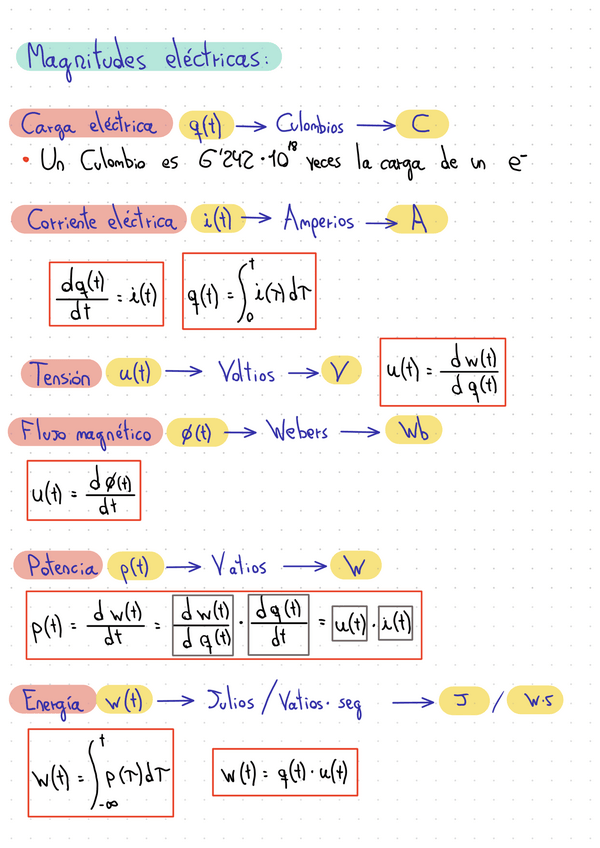 Magnitudes eléctricas:
Carga eléctrica q(t) → Culombios → C
• Un Culombio es 6'242·10¹⁸ veces la carga de un e⁻
Corriente eléctrica i(t) → Amperios → A
dq(t)/dt = i(t) q(t) = ∫₀ᵗ i(τ)dτ
Tensión u(t) → Voltios → V u(t) = dw(t)/dq(t)
Flujo magnético ϕ(t) → Webers → Wb
u(t) = dϕ(t)/dt
Potencia p(t) → Vatios → W
p(t) = dw(t)/dt = dw(t)/dq(t) · dq(t)/dt = u(t) · i(t)
Energía w(t) → Julios / Vatios·seg → J / W·s
w(t) = ∫₋∞ᵗ p(τ)dτ w(t) = q(t)·u(t)